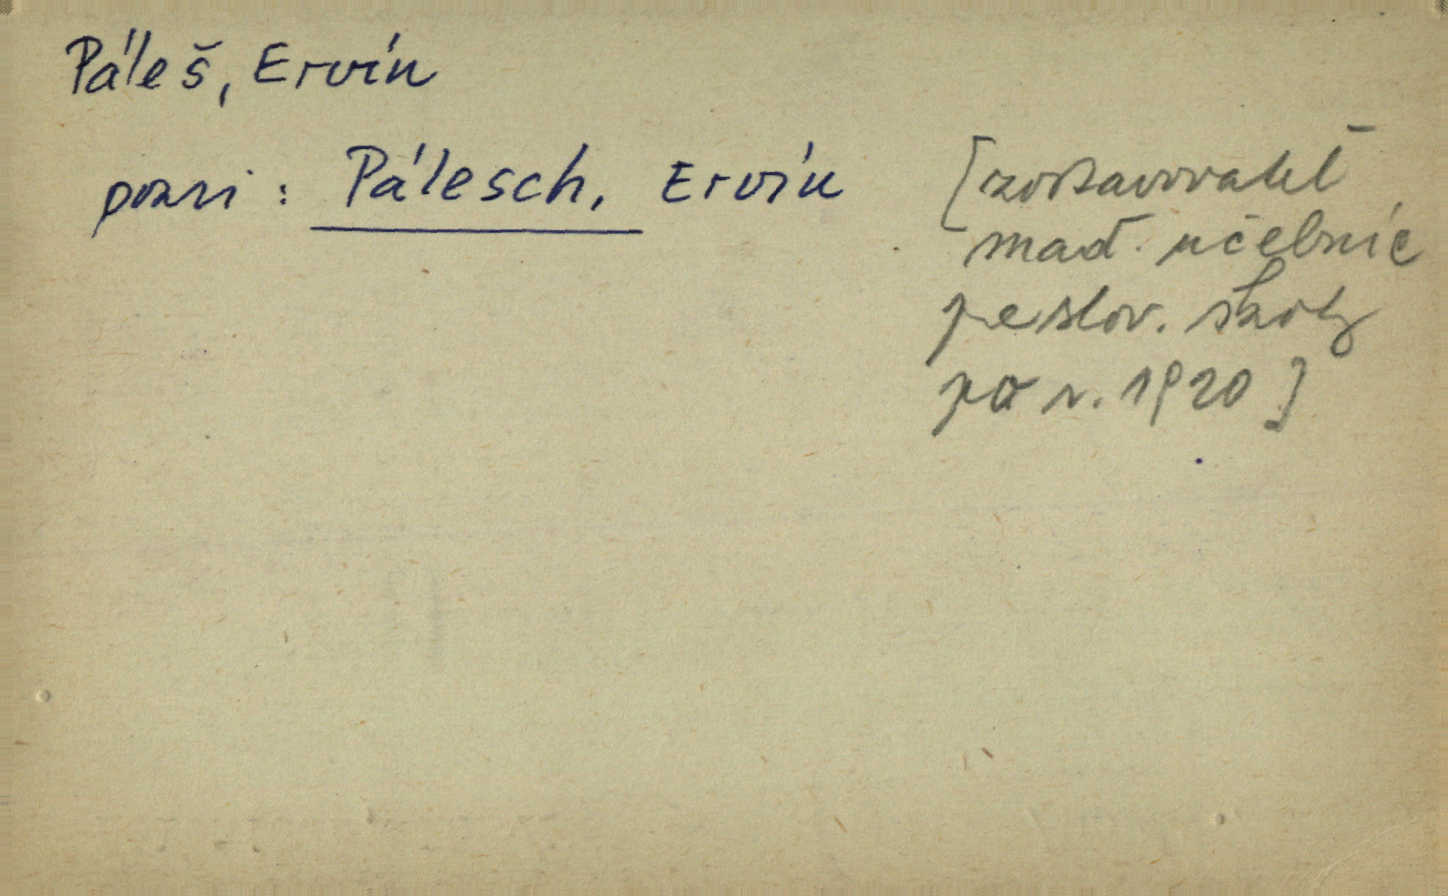 Páleš, Ervín
pozri: Pálesch, Ervín
[zostavovateľ
maď. učebníc
pre slov. školy
po r. 1920]